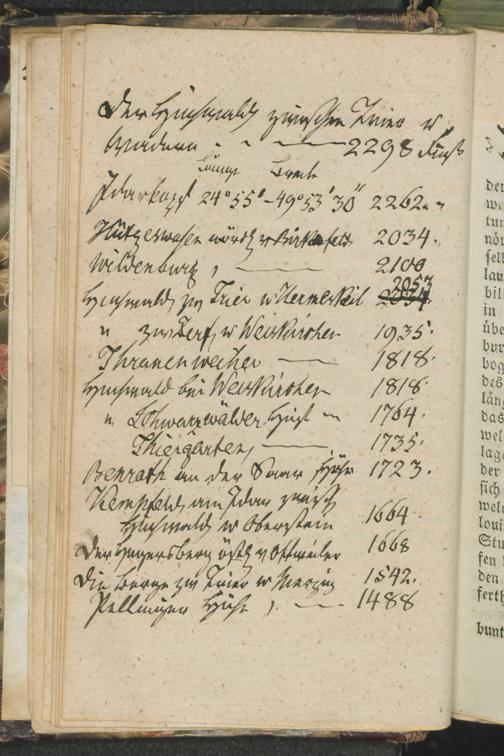 Der Hochwald zwischen Trier u
Wadern - - — 2298 Fuß
Länge Breite
Idarkopf 24°55' – 49°53'30" 2262. "
Hüttgeswasen nördl v Birkenfeld 2034.
Wildenburg, — 2100
Hochwald zw Trier u Hermeskeil 2053
" zw Zerf u Weiskirchen 1935.
Thranenweiher — 1818.
Hochwald bei Weiskirchen 1818.
" Schwarzwälder Hochw — 1764.
Thiergarten, — 1735.
Benrath an der Saar Höhe 1723.
Kempfeld am Idar zwisch
Hochwald u Oberstein 1664.
Der östl v Ottweiler 1668
Die Berge zw Trier u Merzig 1542.
Pellinger Höhe, — 1488
der
we
tun
nör
selb
lau
bil
in
übe
bur
bog
des
län
das
wel
lag
der
sich
wel
loui
Stu
sen
den
fert
bunt